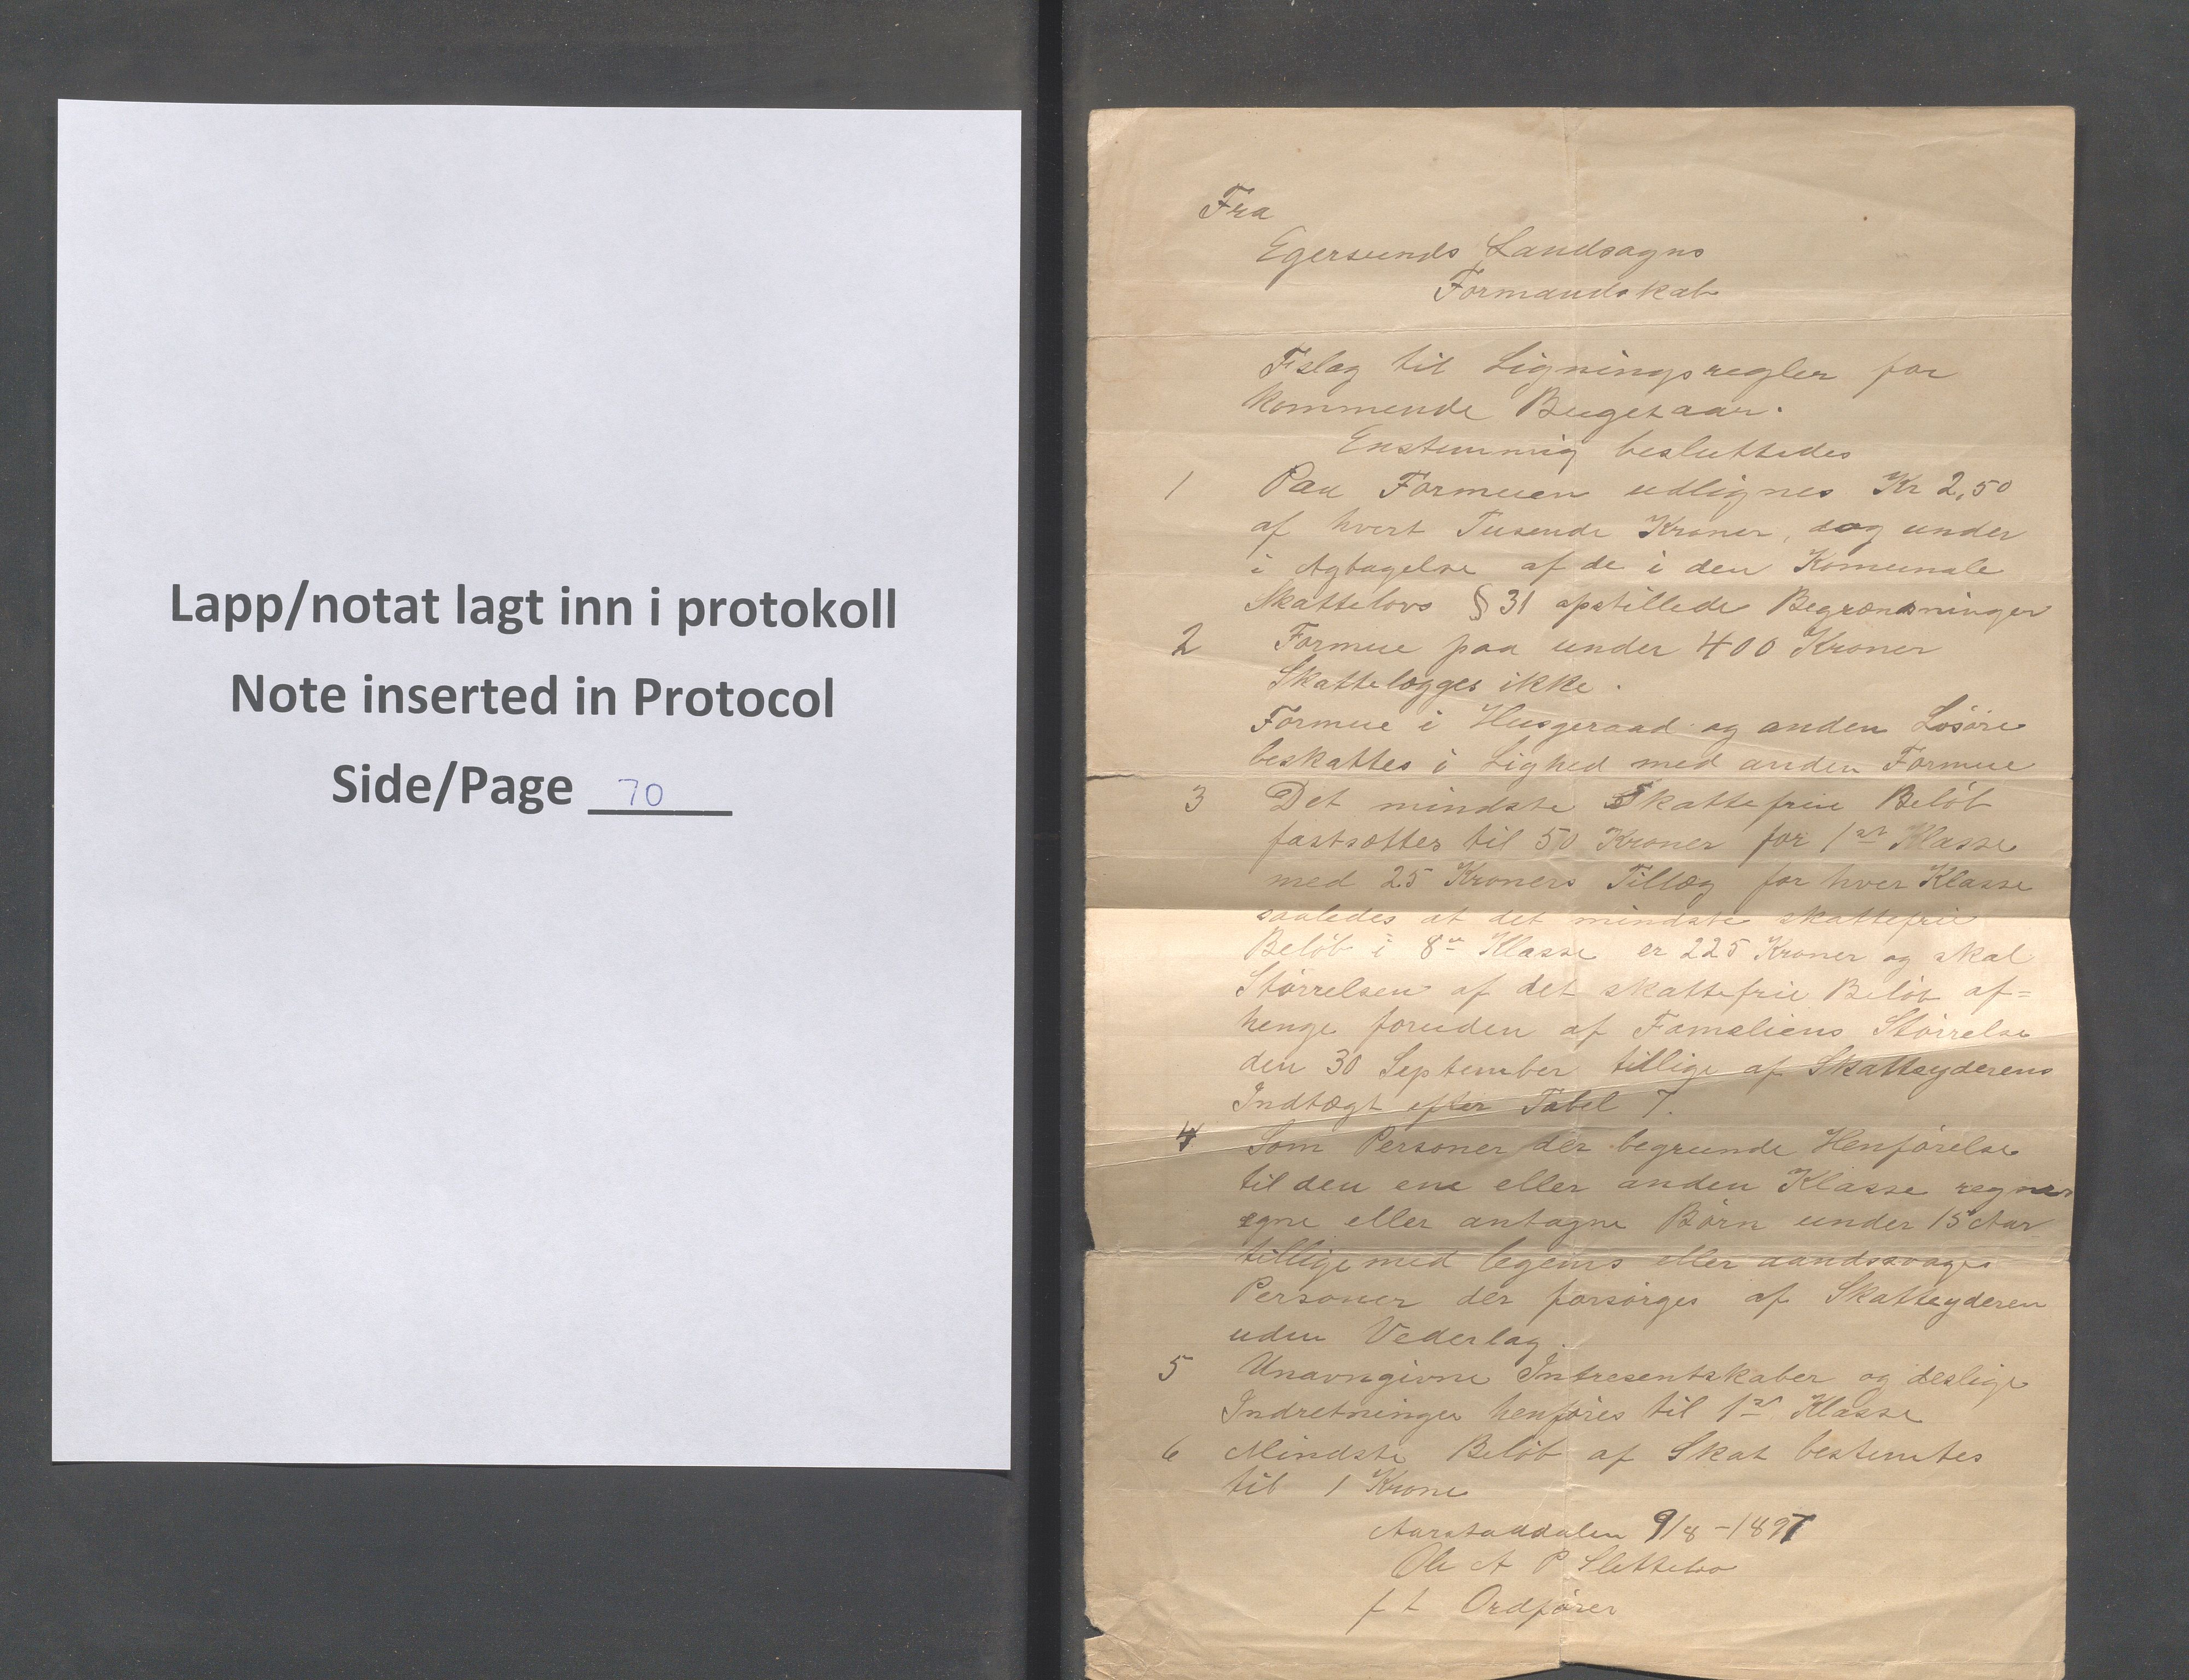 Lapp/notat lagt inn i protokoll
Note inserted in Protocol
Side/Page 70
Fra
Egersunds Landsogns
Formandskab
Fslag til Ligningsregler for
kommende Bugetaar.
Enstemmig besluttedes
1 Paa Formuen udlignes Kr 2,50
af hvert Tusende Kroner, dog under
i Agtagelse af de i den Komunale
Skattelovs § 31 opstillede Begrænsninger
2 Formue paa under 400 Kroner
Skattelægges ikke.
Formue i Husgeraad og anden Løsøre
beskattes i Lighed med anden Formue
3 Det mindste Skattefrie Beløb
fastsættes til 50 Kroner for 1ste Klasse
med 25 Kroners Tillæg for hver Klasse
saaledes at det mindste skattefrie
Beløb i 8de Klasse er 225 Kroner og skal
Størrelsen af det skattefrie Beløb af=
henge foruden af Fameliens Størrelse
den 30 September tillige af Skatteyderens
Indtægt efter Tabel 7.
4 Som Personer der begrunde Henførelse
til den ene eller anden Klasse regnes
egne eller antagne Børn under 15 Aar
tillige med legems eller aandssvage
Personer der forsørges af Skatteyderen
uden Vederlag.
5 Unavngivne Intresentskaber og deslige
Indretninger henføres til 1ste Klasse
6 Mindste Beløb af Skat bestemtes
til 1 Krone
Aarstaddalen 9/8 - 1897
Ole A P Slettebø
f t Ordfører